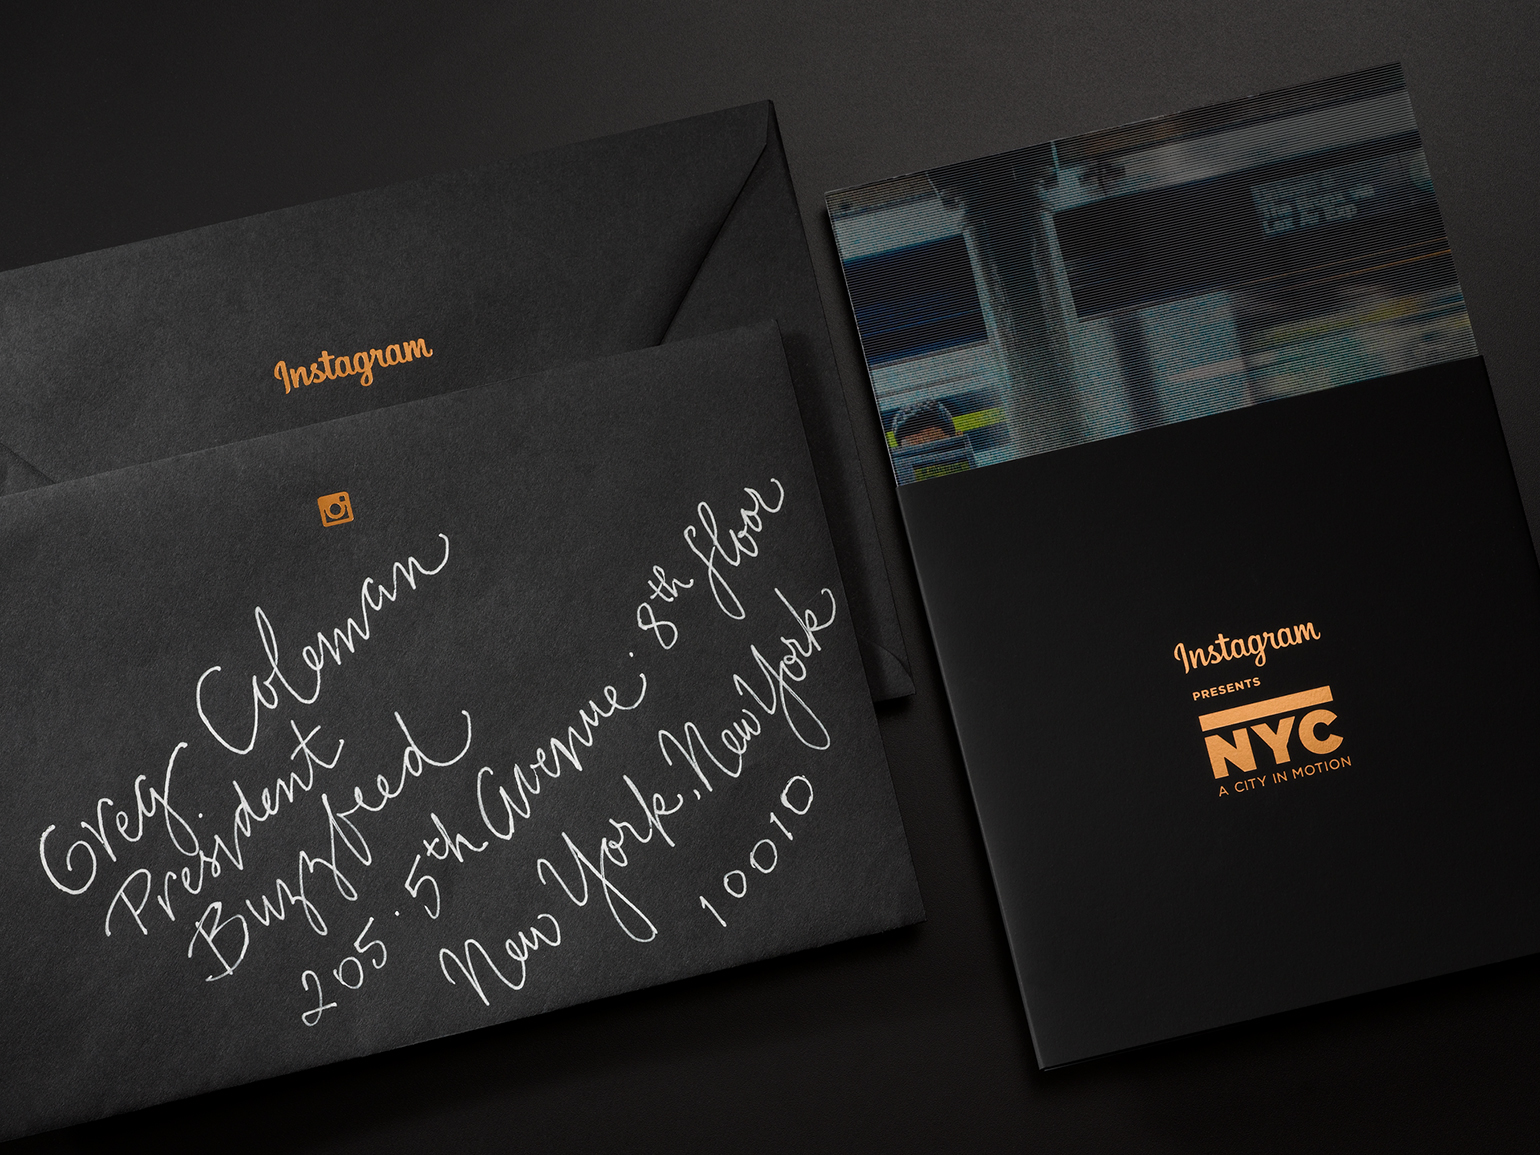 Instagram
Greg Coleman
President
Buzzfeed
205. 5th Avenue. 8th floor
New York, New York
10010
Instagram
PRESENTS
NYC
A CITY IN MOTION